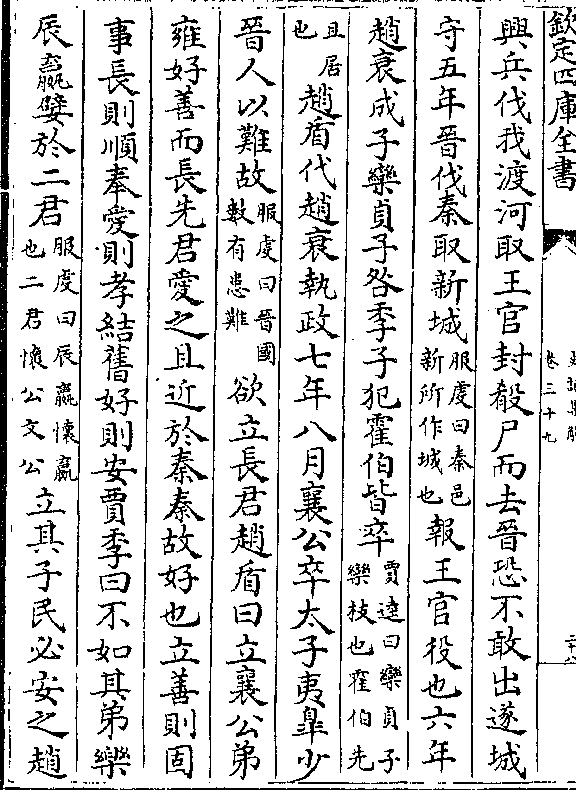 欽定四庫全書
卷三十九
興兵伐我渡河取王官封殽尸而去晉恐不敢出遂城
守五年晉伐秦取新城服虔曰秦邑新所作城也報王官役也六年
趙衰成子欒貞子咎季子犯霍伯皆卒賈逵曰欒貞子欒枝也霍伯先
且居也趙盾代趙衰執政七年八月襄公卒太子夷皐少
晉人以難故服虔曰晉國數有患難欲立長君趙盾曰立襄公弟
雍好善而長先君愛之且近於秦秦故好也立善則固
事長則順奉愛則孝結舊好則安賈季曰不如其弟樂
辰嬴嬖於二君服虔曰辰嬴懷嬴也二君懷公文公立其子民必安之趙